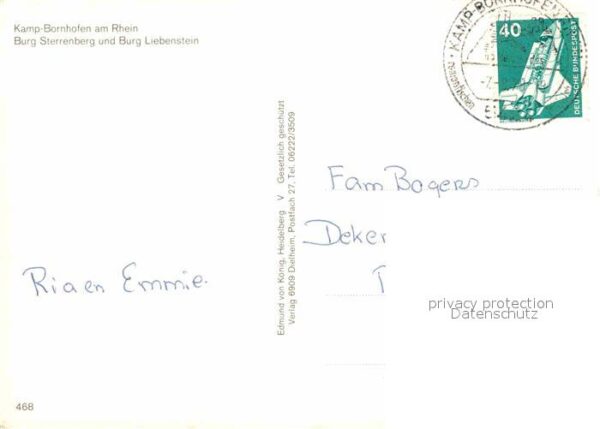 Kamp-Bornhofen am Rhein
Burg Sterrenberg und Burg Liebenstein
KAMP-BORNHOFEN
40
DEUTSCHE BUNDESPOST
Edmund von König, Heidelberg V Gesetzlich geschützt
Verlag 6909 Dielheim, Postfach 27, Tel. 06222/3509
Fam Bogers
Deker
Ria en Emmie.
privacy protection
Datenschutz
468